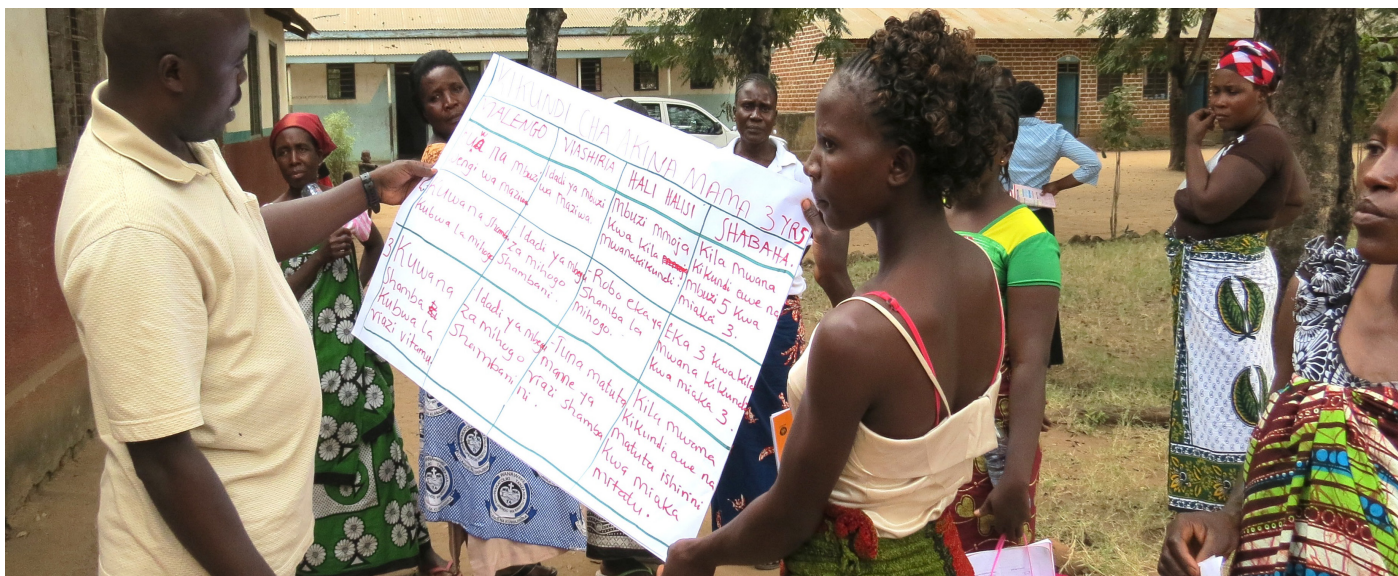 VIKUNDI CHA AKINA MAMA 3 YRS
MALENGO
VIASHIRIA
HALI HALISI
SHABAHA.
na mibuzi
wa maziwa
Idadi ya mbuzi
wa maziwa.
mbuzi mmoja
kwa kila
mwanakikundi
Kila mwana
kikundi awe na
mbuzi 5 kwa
miaka 3.
kubwa la mihogo
Idadi ya
za mihogo
shambani.
Robo eka ya
shamba la
mihogo.
Eka 3 kwa kila
mwana kikundi
kwa miaka 3.
3 Kuwana
Shamba
kubwa la
viazi vitamu.
Idadi ya mbegu
za mihogo
shambani
Tuna matuta
manne ya
viazi shamba
ni.
Kila mwema
kikundi awe na
matuta ishirini
kwa miaka
mitatu.